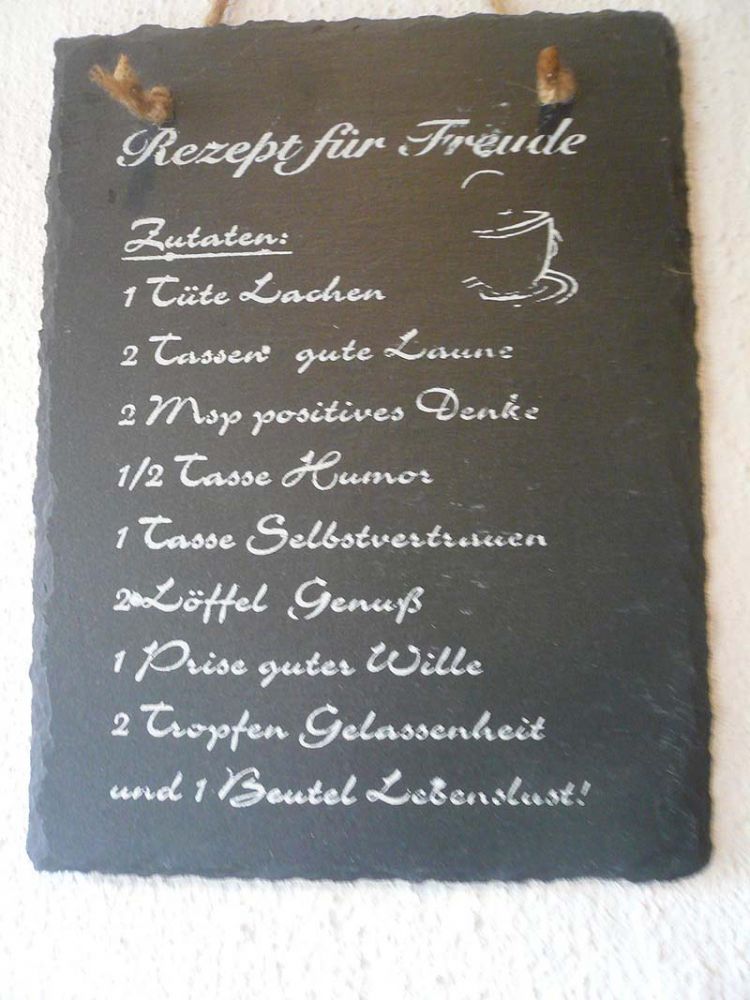 Rezept für Freude
Zutaten:
1 Tüte Lachen
2 Tassen gute Laune
2 Msp positives Denke
1/2 Tasse Humor
1 Tasse Selbstvertrauen
2 Löffel Genuß
1 Prise guter Wille
2 Tropfen Gelassenheit
und 1 Beutel Lebenslust!